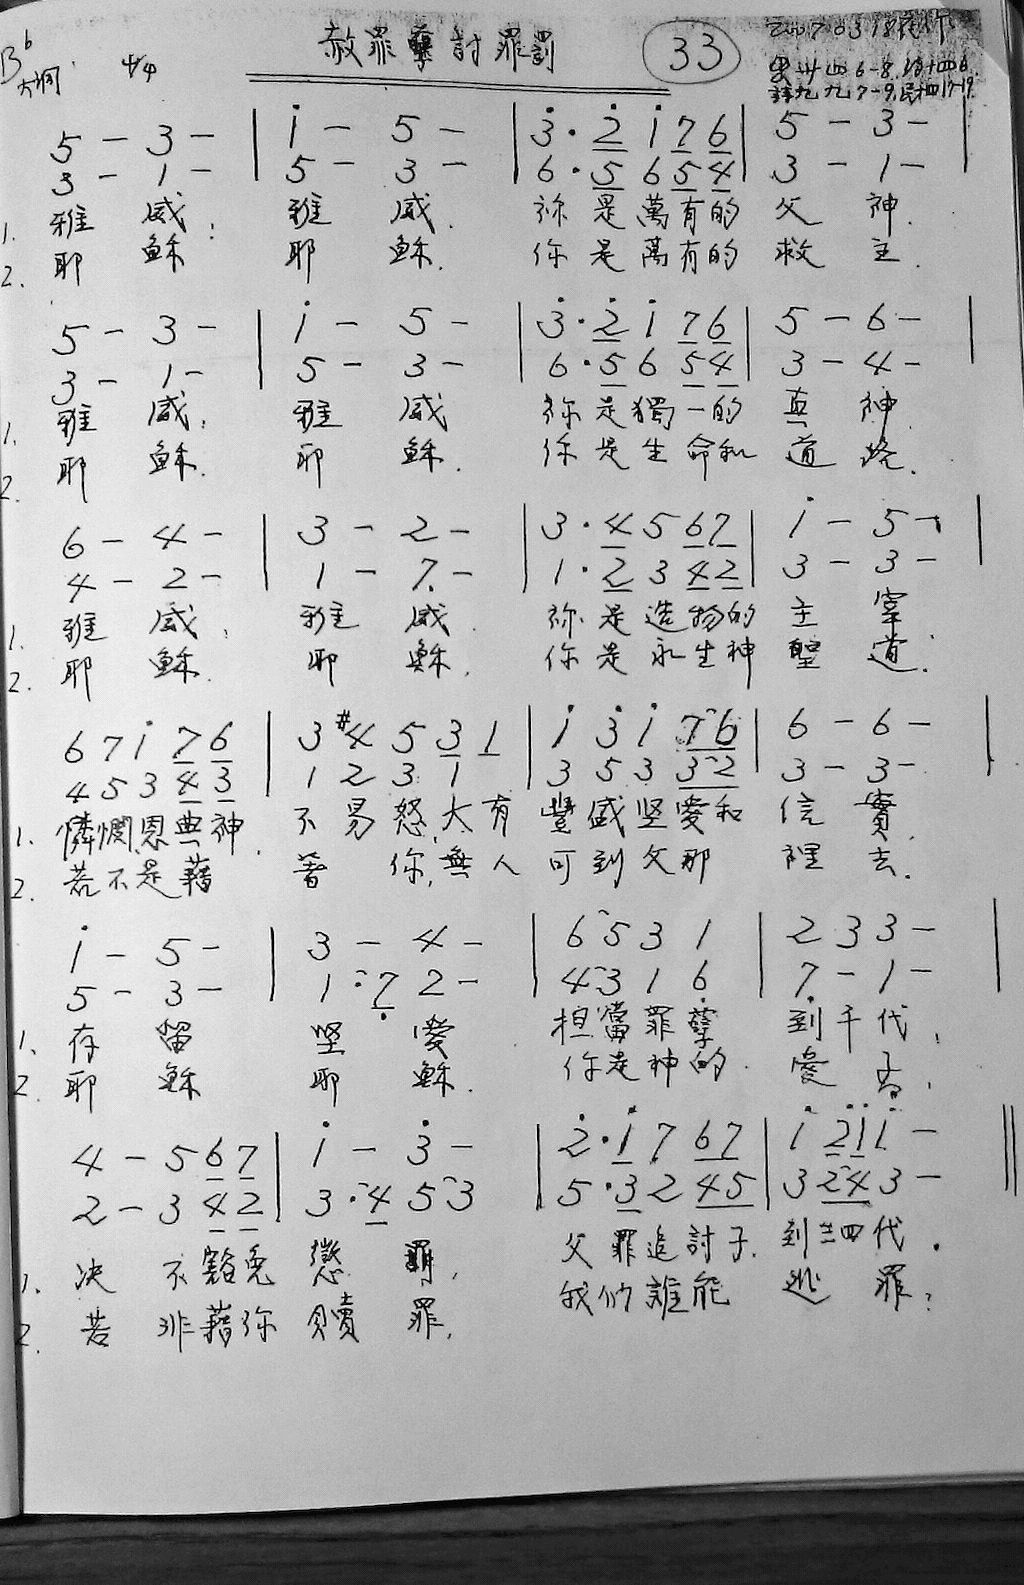 B♭大調 4/4 赦罪孽討罪罰 33 2007 03 18
5 - 3 - | i̇ - 5 - | 3̇ · 2̇ i̇ 7 6 | 5 - 3 - |
3 - 1 - | 5 - 3 - | 6 · 5 6 5 4 | 3 - 1 - |
1. 雅 威: 雅 威. 祢 是 萬有的 父 神.
2. 耶 穌 耶 穌. 你 是 萬有的 救 主.
5 - 3 - | i̇ - 5 - | 3̇ · 2̇ i̇ 7 6 | 5 - 6 - |
3 - 1 - | 5 - 3 - | 6 · 5 6 5 4 | 3 - 4 - |
1. 雅 威, 雅 威 祢 是 獨一的 真 神
2. 耶 穌. 耶 穌. 你 是 生 命和 道 路.
6 - 4 - | 3 - 2 - | 3 · 4 5 6 7 | i̇ - 5 - |
4 - 2 - | 1 - 7̣ - | 1 · 2 3 4 2 | 3 - 3 - |
1. 雅 威, 雅 威. 祢 是 造物的 主 宰
2. 耶 穌. 耶 穌. 你 是 永生神 聖 道.
6 7 i̇ 7 6 | 3 #4 5 3 1 | i̇ 3̇ i̇ 7 6 | 6 - 6 - |
4 5 3 4 3 | 1 2 3 1 | 3 5 3 3 2 | 3 - 3 - |
1. 憐憫恩典神. 不 易 怒,大 有 豐 盛 堅 愛和 信 實.
2. 若不是藉 著 你,無 人 可 到 父 那 裡 去.
i̇ - 5 - | 3 - 4 - | 6 5 3 1 | 2 3 3 - |
5 - 3 - | 1 · 7̣ 2 - | 4 3 1 6̣ | 7̣ - 1 - |
1. 存 留 堅 愛 担當罪孽 到千代,
2. 耶 穌 耶 穌. 你是神的 愛 子,
4 - 5 6 7 | i̇ - 3̇ - | 2̇ · i̇ 7 6 7 | i̇ 2̇ i̇ i̇ - ||
2 - 3 4 2 | 3 · 4 5 3 | 5 · 3 2 4 5 | 3 2 4 3 - ||
1. 决 不 豁免 懲 罰, 父 罪追討子. 到三四代.
2. 若 非藉祢 贖 罪, 我們誰能 逃 罪?